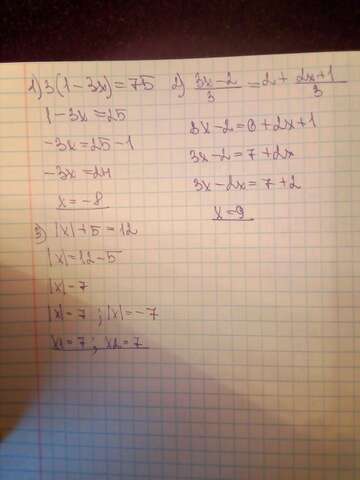 1) 3(1-3x)=75
1-3x=25
-3x=25-1
-3x=24
x=-8
2) (3x-2)/3 = 2 + (2x+1)/3
3x-2=6+2x+1
3x-2=7+2x
3x-2x=7+2
x=9
3) |x|+5=12
|x|=12-5
|x|=7
|x|=7; |x|=-7
x1=7; x2=7